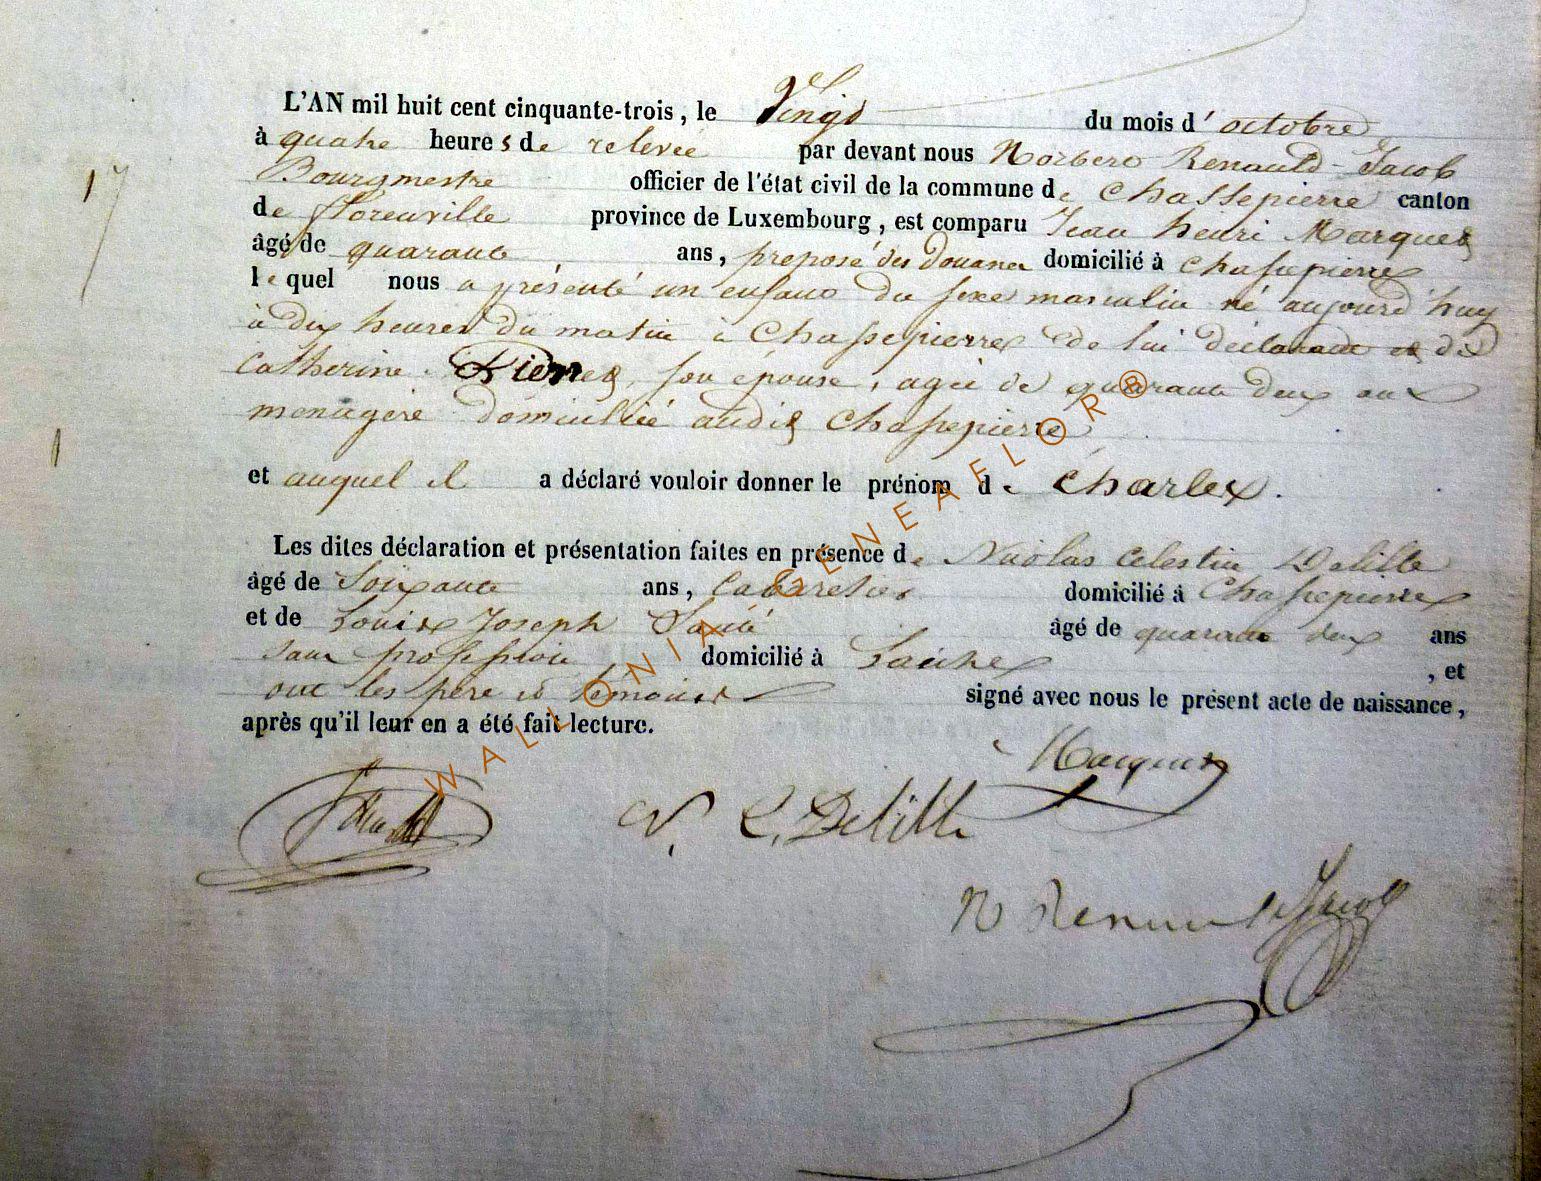 L'AN mil huit cent cinquante-trois, le Vingt du mois d'octobre
17
à quatre heures de relevée par devant nous Norbert Renauld-Jacob
Bourgmestre officier de l'état civil de la commune de Chassepierre canton
de florenville province de Luxembourg, est comparu Jean henri Marquet
âgé de quarante ans, preposé des douanes domicilié à chassepierre
lequel nous a présenté un enfant du sexe masculin né aujourd'huy
à dix heures du matin à Chassepierre de lui déclarant et de
Catherine Pierret, son épouse, agée de quarante deux ans
menagère domiciliée audit Chassepierre
et auquel il a déclaré vouloir donner le prénom de Charles.
Les dites déclaration et présentation faites en présence de Nicolas Celestin Delille
âgé de Soixante ans, Cabaretier domicilié à Chassepierre
et de Louis Joseph âgé de quarante deux ans
sans profession, domicilié à , et
ont les père et témoins signé avec nous le présent acte de naissance,
après qu'il leur en a été fait lecture.
Marquet
N. C. Delille
N Renauld Jacob
WALLONIA GENEAFLOR®